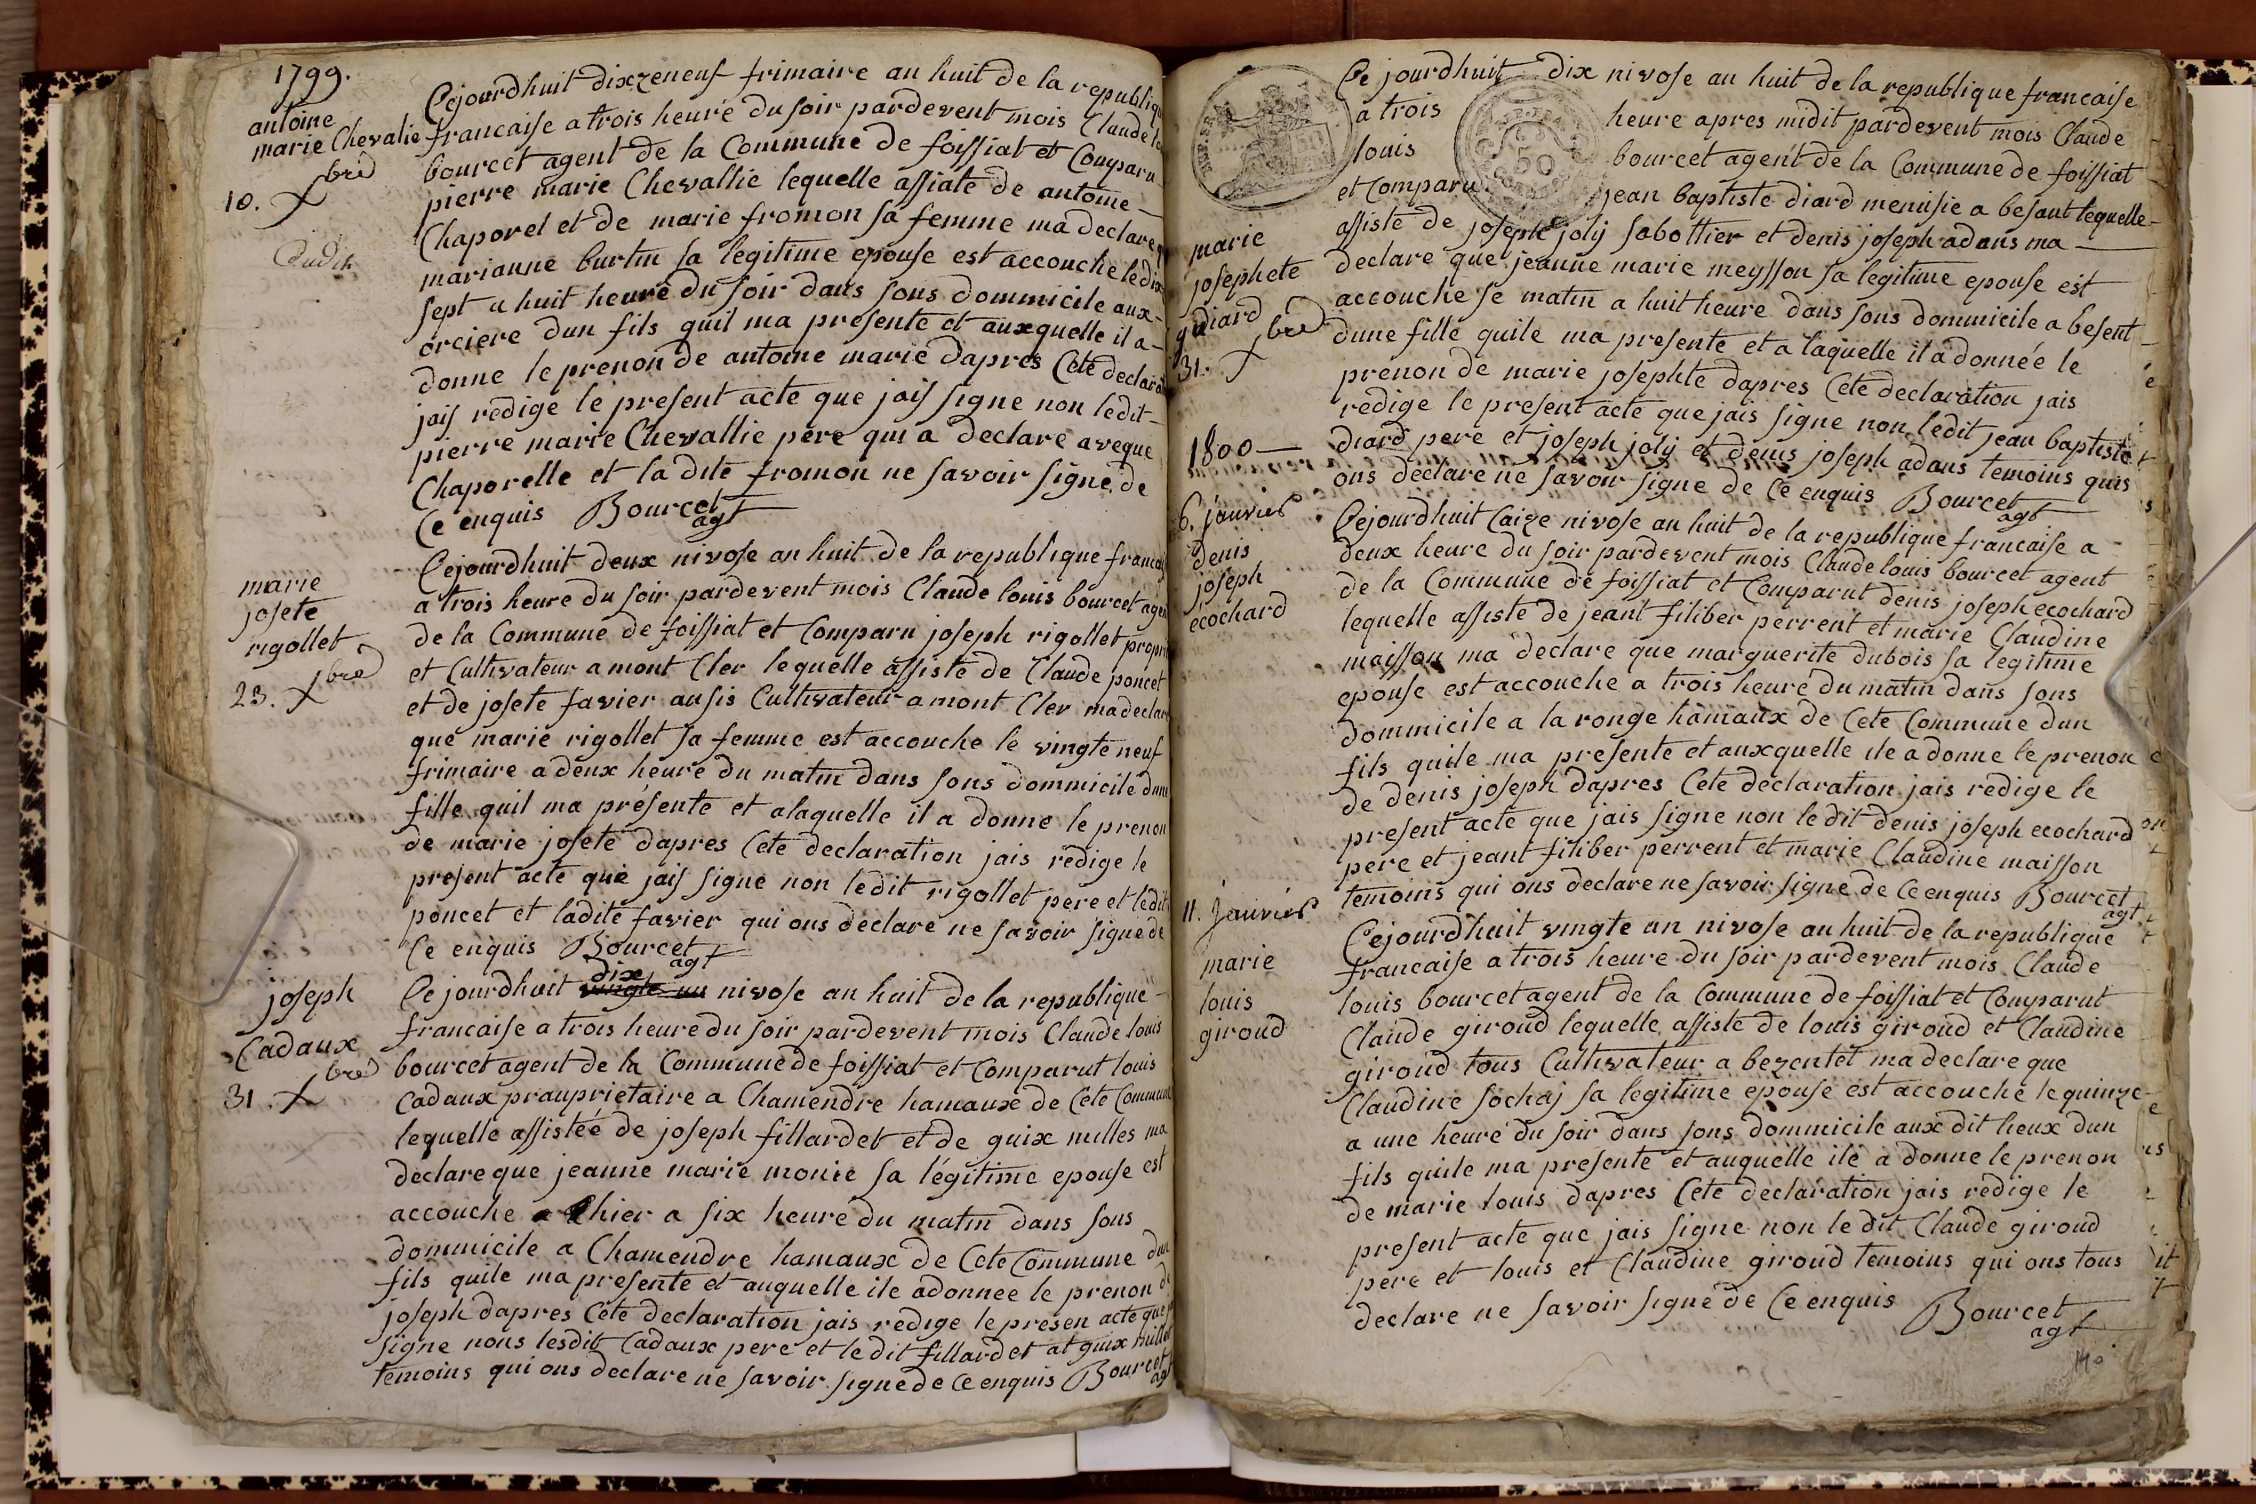 1799.
antoine
marie Chevalie
10. Xbre
Cejourdhuit dixzeneuf frimaire an huit de la republique
francaise a trois heure du soir pardevent mois Claude
bourcet agent de la Commune de foissiat et Comparu
pierre marie Chevallie lequelle assiate de antoine
Chaporel et de marie fromon sa femme ma declare
marianne burtin sa legitime epouse est accouche le dix
sept a huit heure du soir dans sons dommicile aux
orciere dun fils quil ma presente et auxquelle il a
donne le prenon de antoine marie dapres Cete declara
jais redige le present acte que jais signe non ledit
pierre marie Chevallie pere qui a declare aveque
Chaporelle et la dite fromon ne savoir signe de
Ce enquis Bourcet
agt
marie
josete
rigollet
23. Xbre
Cejourdhuit deux nivose an huit de la republique francai
a trois heure du soir pardevent mois Claude louis bourcet agen
de la Commune de foissiat et Comparu joseph rigollet propri
et Cultivateur a mont Cler lequelle assiste de Claude poncet
et de josete favier ausis Cultivateur a mont Cler ma declare
que marie rigollet sa femme est accouche le vingte neuf
frimaire a deux heure du matin dans sons dommicile dune
fille quil ma présente et alaquelle il a donne le prenon
de marie josete dapres Cete declaration jais redige le
present acte que jais signe non ledit rigollet pere et ledit
poncet et ladite favier qui ons declare ne savoir signe de
Ce enquis Bourcet
agt
joseph
Cadaux
31. Xbre
dix
Ce jourdhuit vingte un nivose an huit de la republique
francaise a trois heure du soir pardevent mois Claude louis
bourcet agent de la Commune de foissiat et Comparut louis
Cadaux praupriétaire a Chamendre hamaux de Cete Commune
lequelle assistéé de joseph fillardet et de guix milles ma
declare que jeanne marie monie sa légitime epouse est
accouche hier a six heure du matin dans sons
dommicile a Chamendre hamaux de Cete Commune dun
fils quile ma presente et auquelle ile adonnee le prenon de
joseph dapres Cete declaration jais redige le presen acte que
signe nons lesdit Cadaux pere et le dit fillardet at guix millet
temoins qui ons declare ne savoir signe de Ce enquis Bourcet
agt
Ce jourdhuit dix nivose an huit de la republique francaise
a trois heure apres midit pardevent mois Claude
louis bourcet agent de la Commune de foissiat
et Comparu jean baptiste diard menusie a besant lequelle
50
assiste de joseph joly sabottier et denis joseph adans ma
declare que jeanne marie meysson sa legitime epouse est
accouche se matin a huit heure dans sons dommicile a besent
dune fille quile ma presente et a laquelle il a donnée le
prenon de marie josephte dapres Cete declaration jais
redige le present acte que jais signe non ledit jean baptiste
diard pere et joseph joly et denis joseph adans temoins quis
ons declare ne savoir signe de Ce enquis Bourcet
agt
marie
josephete
diard
31. Xbre
1800
6. janvier
denis
joseph
ecochard
Cejourdhuit Caize nivose an huit de la republique francaise a
deux heure du soir pardevent mois Claude louis bourcet agent
de la Commune de foissiat et Comparut denis joseph ecochard
lequelle assiste de jeant filiber perrent et marie Claudine
maisson ma declare que marguerite dubois sa legitime
epouse est accouche a trois heure du matin dans sons
dommicile a la ronge hamaux de Cete Commune dun
fils quile ma presente et auxquelle ile a donne le prenon
de denis joseph dapres Cete declaration jais redige le
present acte que jais signe non le dit denis joseph ecochard
pere et jeant filiber perrent et marie Claudine maisson
temoins qui ons declare ne savoir signe de Ce enquis Bourcet
agt
11. Janvier
marie
louis
giroud
Cejourdhuit vingte un nivose an huit de la republique
francaise a trois heure du soir pardevent mois Claude
louis bourcet agent de la Commune de foissiat et Comparut
Claude giroud lequelle assiste de louis giroud et Claudine
giroud tous Cultivateur a bezentet ma declare que
Claudine sochaj sa legitime epouse est accouche le quinze
a une heure du soir dans sons dommicile aux dit lieux dun
fils quile ma presente et auquelle ile a donne le prenon
de marie louis dapres Cete declaration jais redige le
present acte que jais signe non le dit Claude giroud
pere et louis et Claudine giroud temoins qui ons tous
declare ne savoir signe de Ce enquis Bourcet
agt